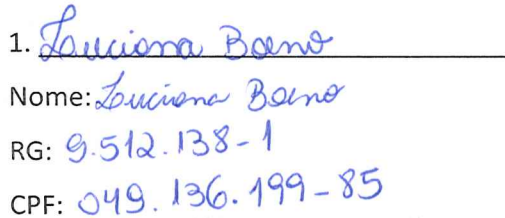 1. Luciana Boeno
Nome: Luciana Boeno
RG: 9.512.138-1
CPF: 049.136.199-85